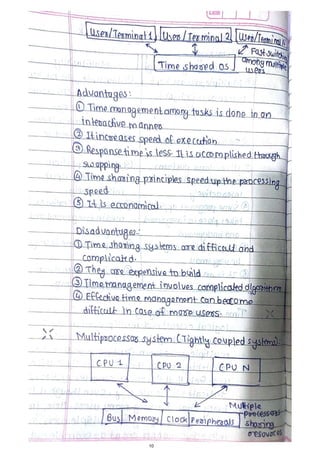 User/Terminal 1 User/Terminal 2 User/Terminal n
Fast switching
among multiple
users
Time shared OS
Advantages:
① Time management among tasks is done in an
Interactive manner
② It increases speed of execution
③ Response time is less. It is accomplished through
swapping
④ Time sharing principles speed up the processing
speed
⑤ It is economical
Disadvantages:
① Time sharing systems are difficult and
complicated.
② They are expensive to build
③ Time management involves complicated algorithms
④ Effective time management can become
difficult In case of more users.
Multiprocessor system (Tightly coupled systems)
CPU 1 CPU 2 CPU N
Multiple
processors
sharing
resources
Bus Memory Clock Peripherals
10